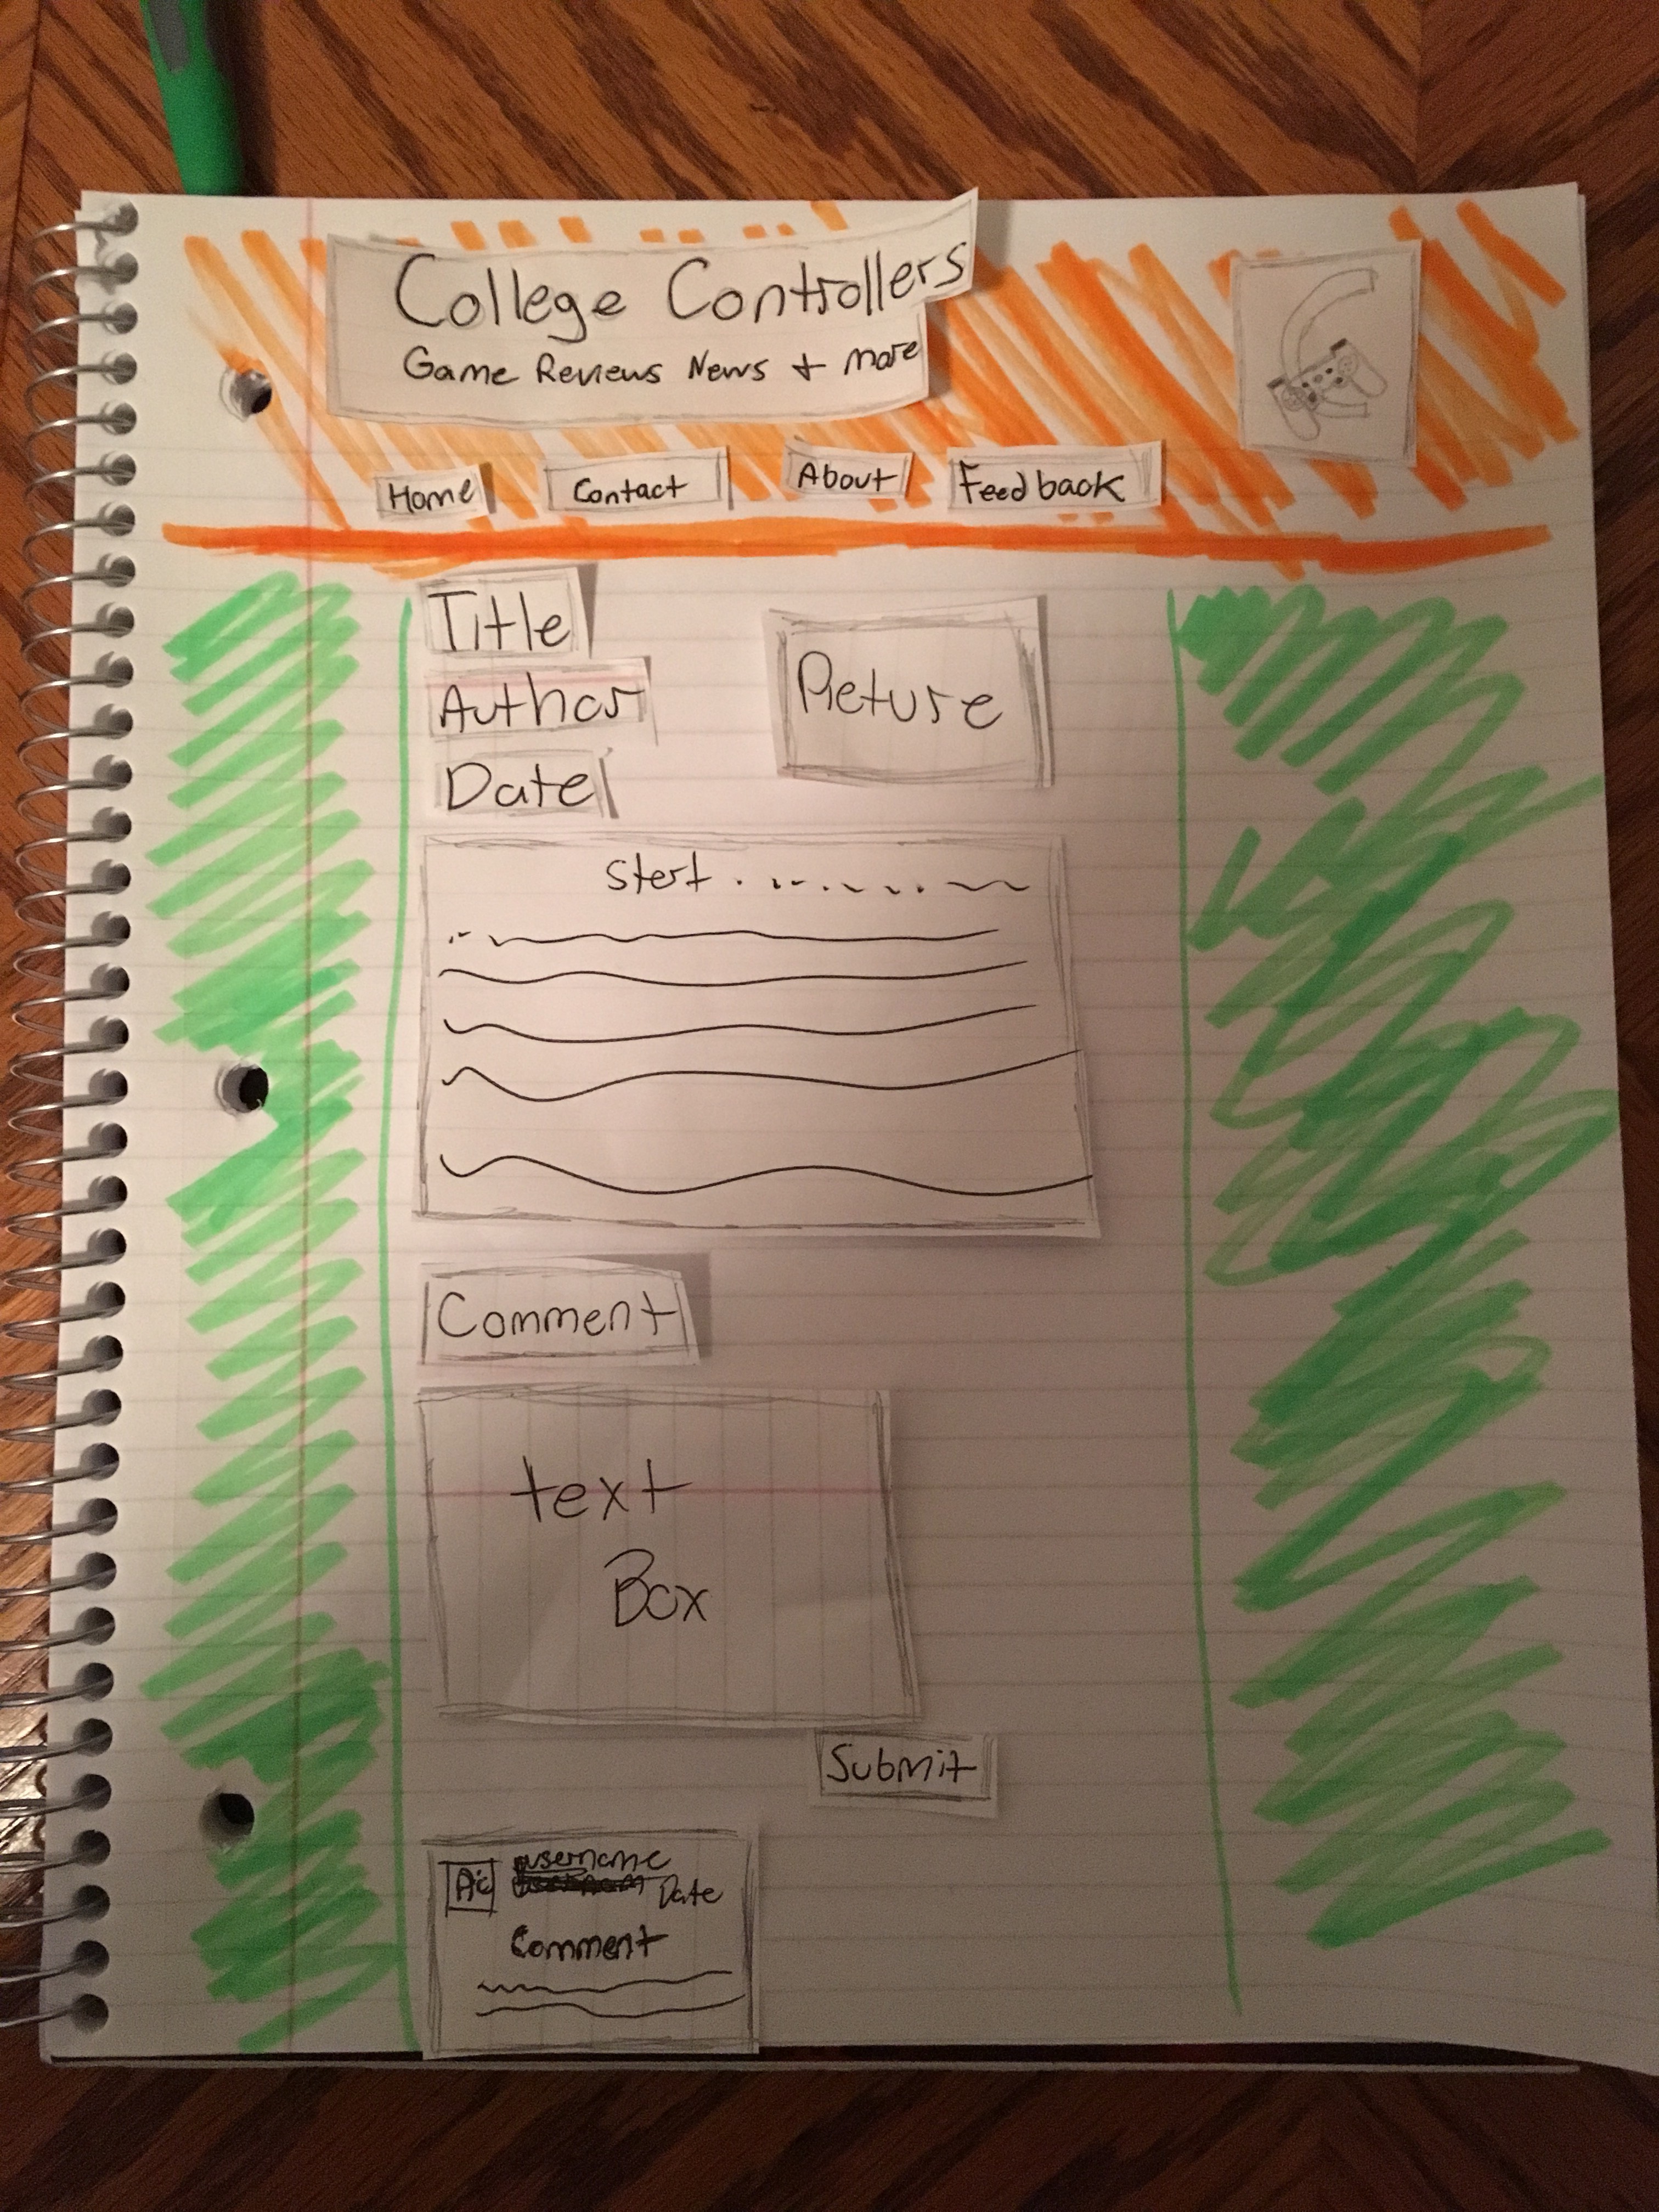 College Controllers
Game Reviews News + more
Home Contact About Feedback
Title
Author
Date
Picture
start
Comment
text
Box
Submit
Pic username
Date
Comment